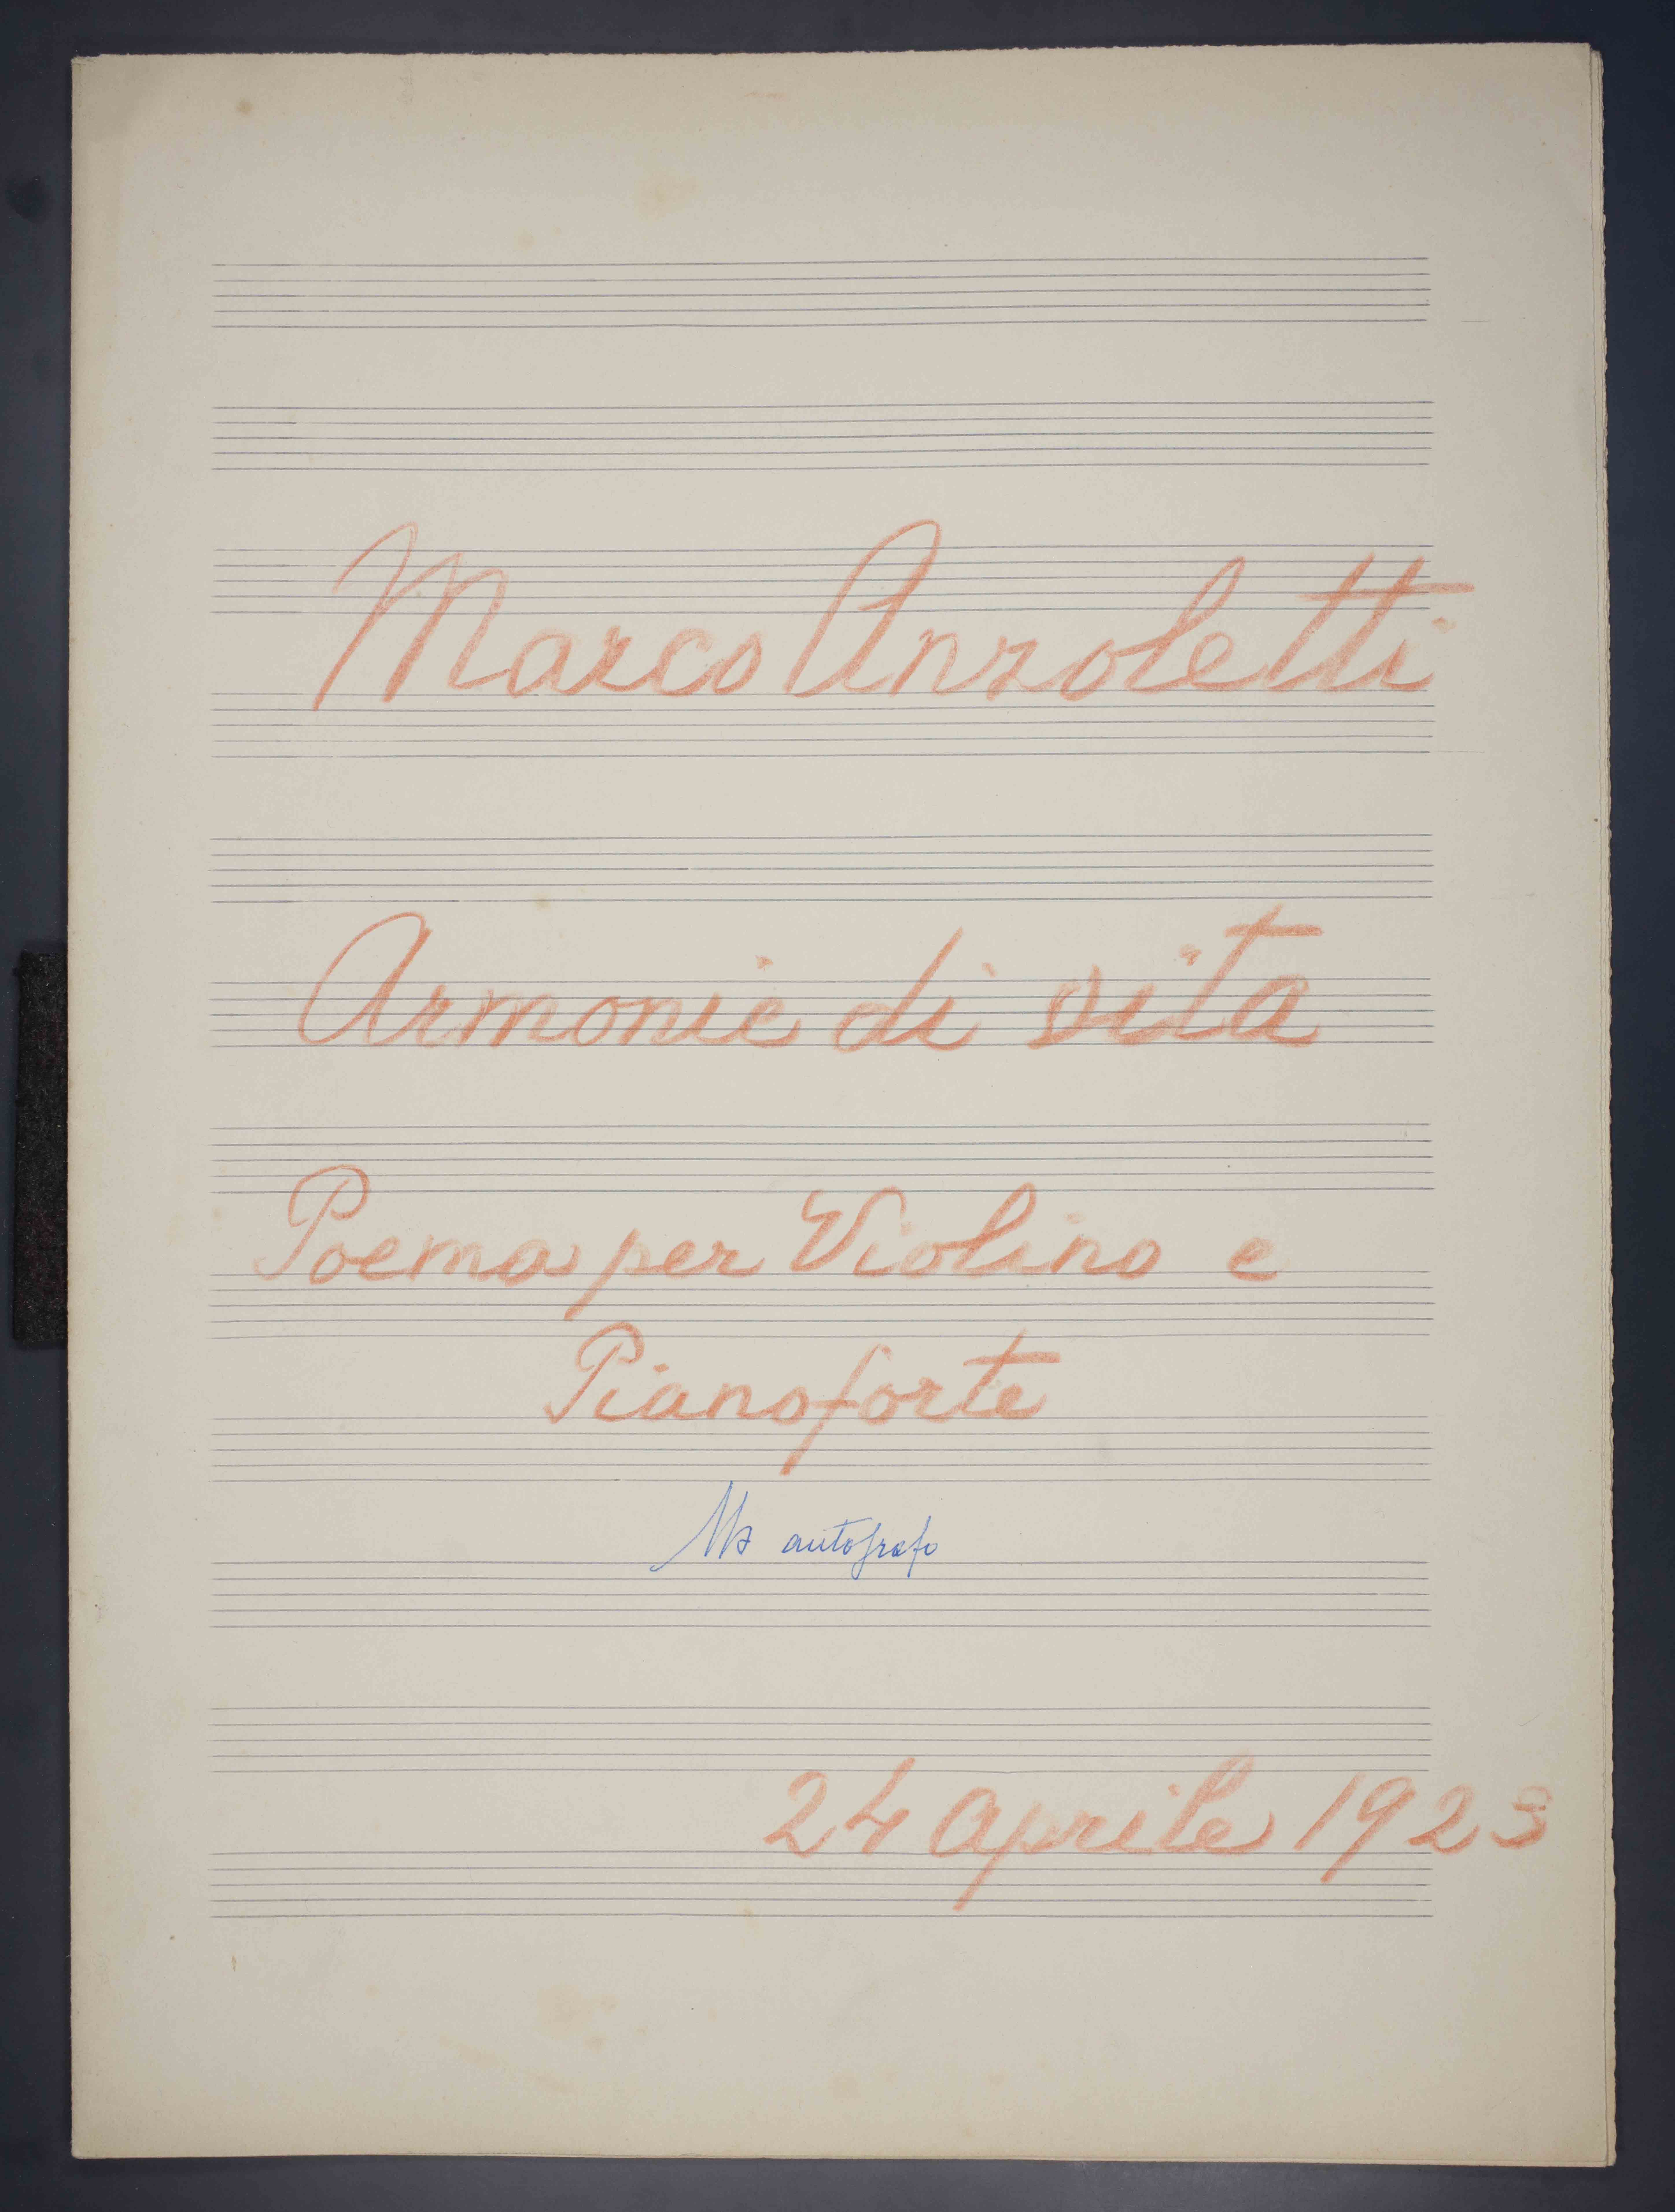 Marco Anzoletti
Armonie di vita
Poema per Violino e
Pianoforte
Ms autografo
24 aprile 1923